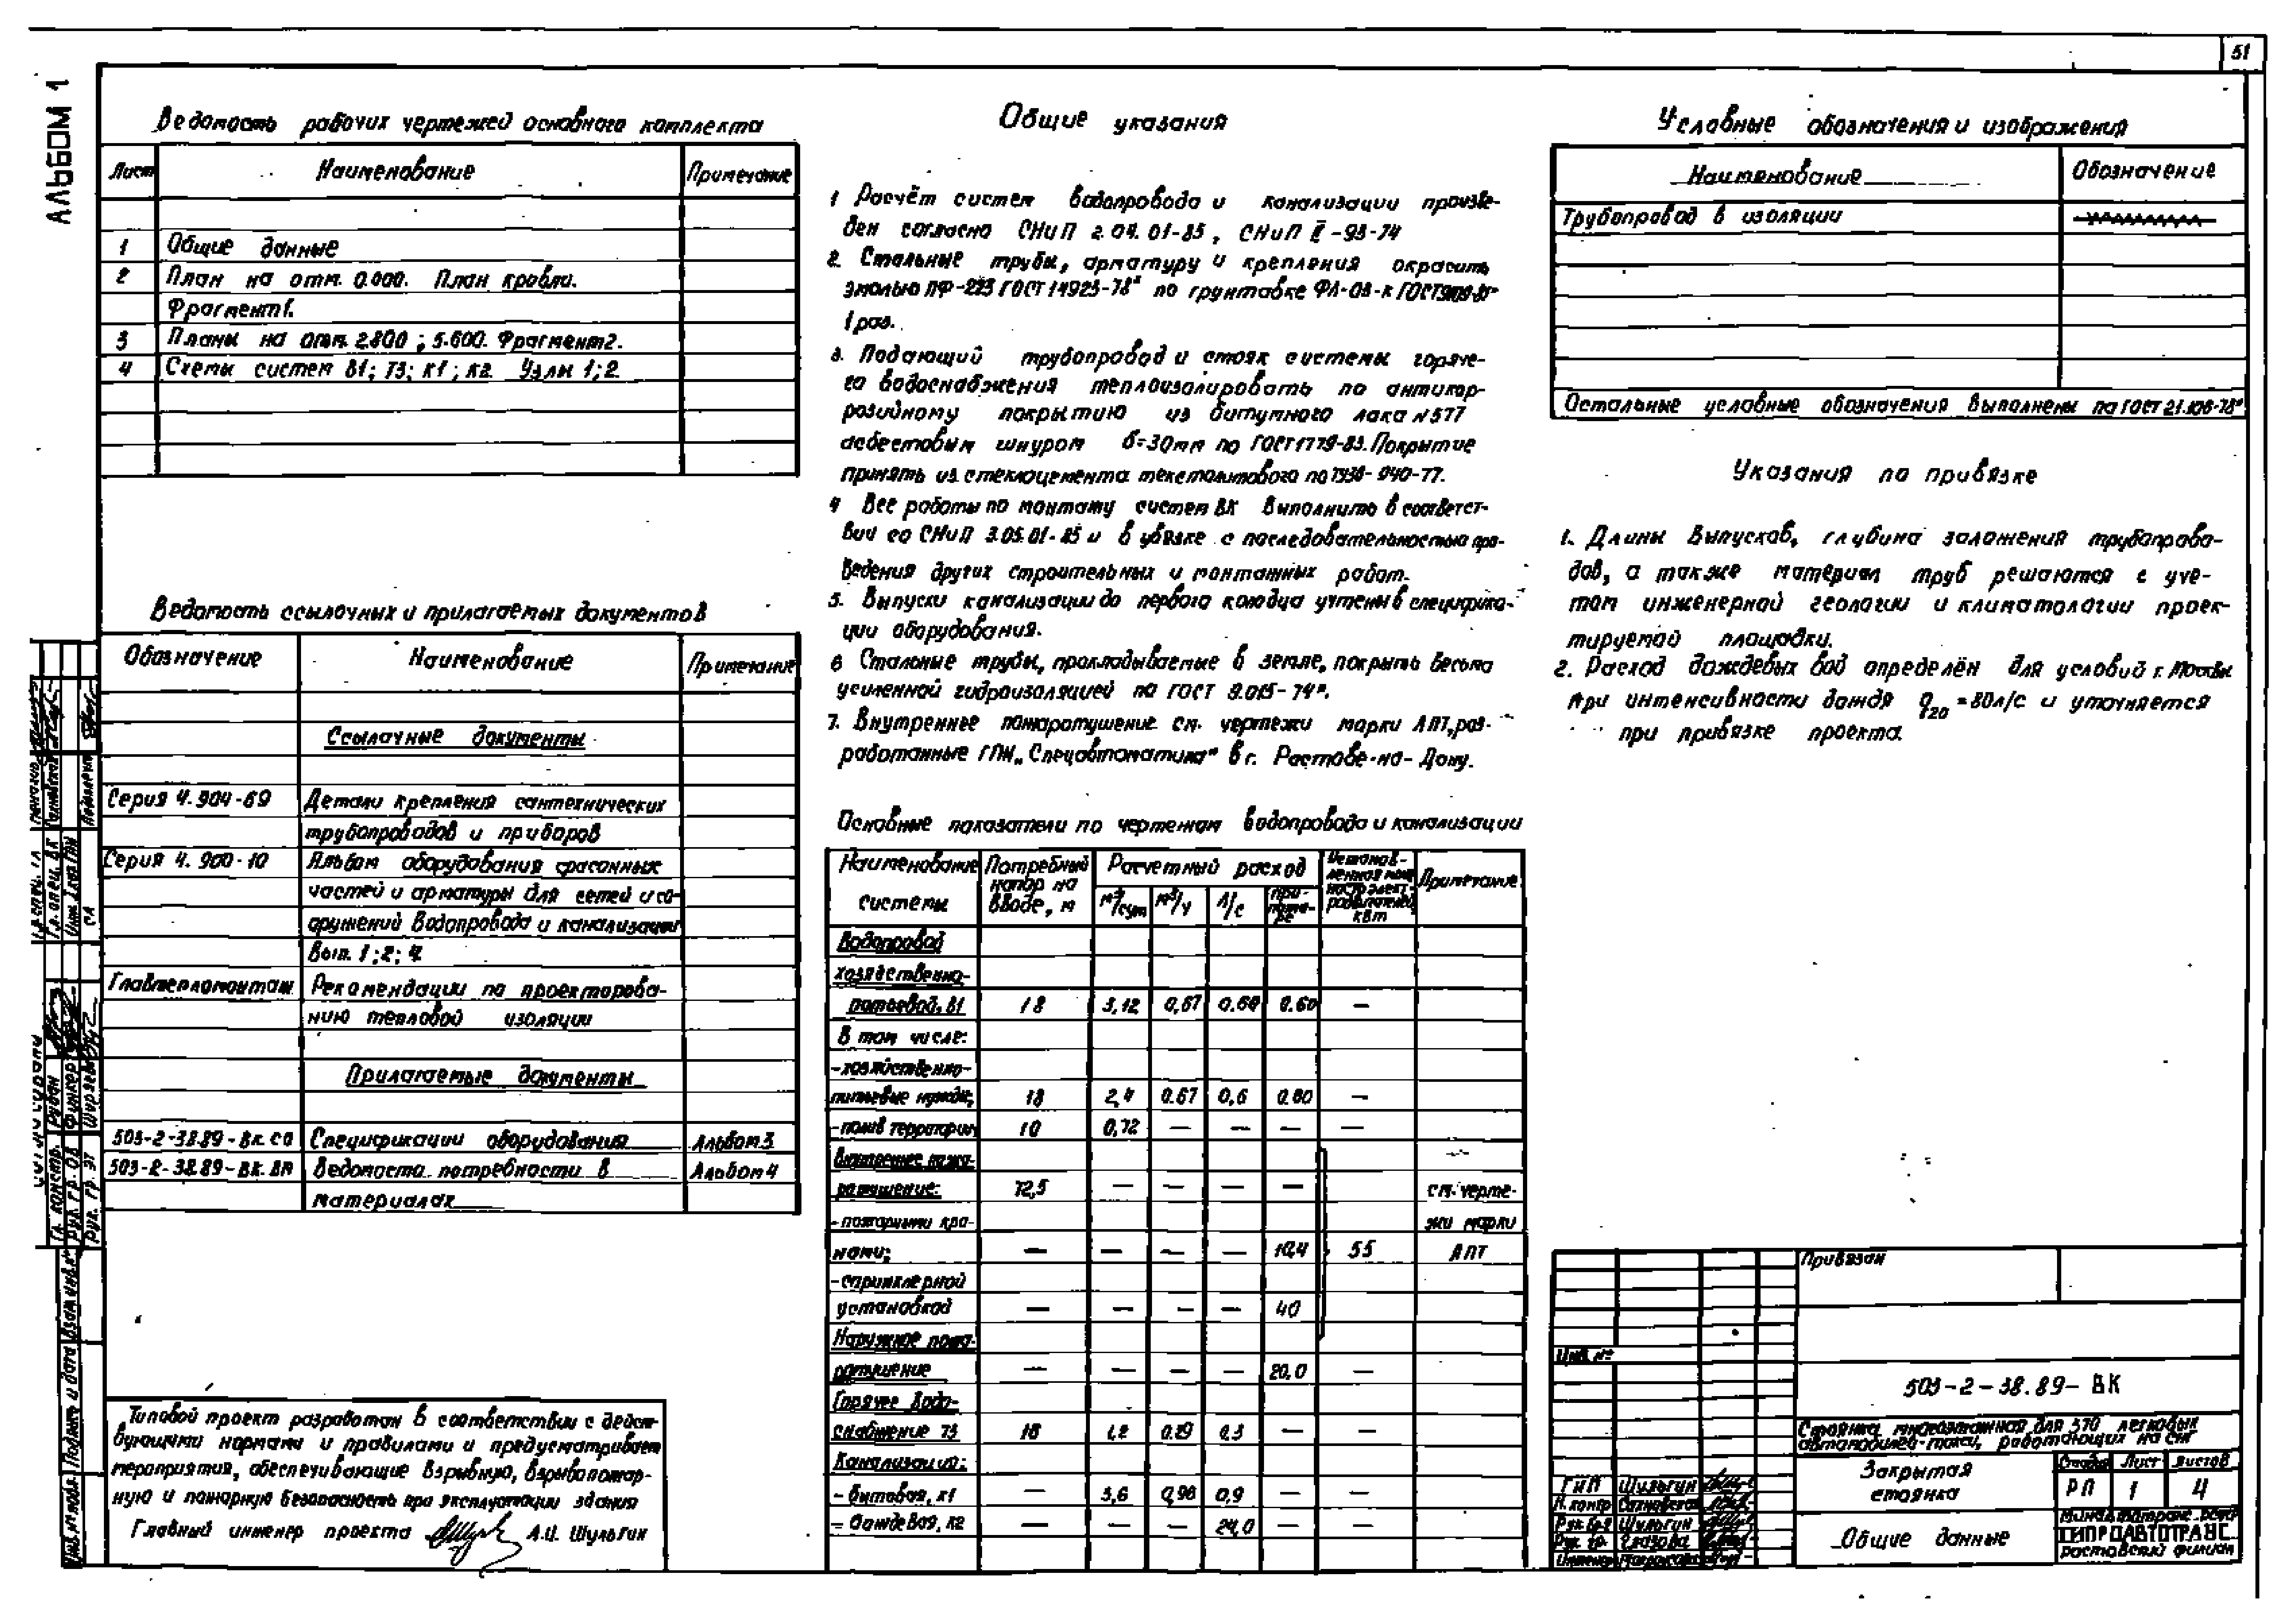 51
АЛЬБОМ 1
Ведомость рабочих чертежей основного комплекта
Лист Наименование Примечание
1 Общие данные
2 План на отм. 0.000. План кровли.
Фрагмент 1.
3 Планы на отм. 2.800; 5.600. Фрагмент 2.
4 Схемы систем В1; Т3; К1; К2. Узлы 1; 2.
Ведомость ссылочных и прилагаемых документов
Обозначение Наименование Примечание
Ссылочные документы
Серия 4.904-69 Детали крепления сантехнических
трубопроводов и приборов
Серия 4.900-10 Альбом оборудования фасонных
частей и арматуры для сетей и со-
оружений водопровода и канализации
Вып. 1; 2; 4
Главтепломонтаж Рекомендации по проектирова-
нию тепловой изоляции
Прилагаемые документы
503-2-38.89-ВК.СО Спецификации оборудования Альбом 3
503-2-38.89-ВК.ВМ Ведомость потребности в Альбом 4
материалах
Типовой проект разработан в соответствии с дейст-
вующими нормами и правилами и предусматривает
мероприятия, обеспечивающие взрывную, взрывопожар-
ную и пожарную безопасность при эксплуатации здания
Главный инженер проекта А.И. Шульгин
Общие указания
1 Расчёт систем водопровода и канализации произве-
ден согласно СНиП 2.04.01-85, СНиП II-93-74
2. Стальные трубы, арматуру и крепления окрасить
эмалью ПФ-223 ГОСТ 14923-78* по грунтовке ФЛ-03-К
1 раз.
3. Подающий трубопровод и стояк системы горяче-
го водоснабжения теплоизолировать по антикор-
розийному покрытию из битумного лака №577
асбестовым шнуром б=30мм по ГОСТ 1779-83. Покрытие
принять из стеклоцемента текстолитового по
4 Все работы по монтажу систем ВК выполнить в соответст-
вии со СНиП 3.05.01-85 и в увязке с последовательностью про-
ведения других строительных и монтажных работ.
5. Выпуски канализации до первого колодца учтены в специфика-
ции оборудования.
6 Стальные трубы, прокладываемые в земле, покрыть весьма
усиленной гидроизоляцией по ГОСТ 9.015-74*.
7. Внутреннее пожаротушение см. чертежи марки АПТ, раз-
работанные ГПИ „Спецавтоматика" в г. Ростове-на-Дону.
Основные показатели по чертежам водопровода и канализации
Наименование системы Потребный напор на вводе, м Расчетный расход м³/сут м³/ч л/с при пожаре Установленная мощность электродвигателей, квт Примечание
Водопровод
хозяйственно-
питьевой, В1 18 3,12 0,67 0.60 0.60 —
В том числе:
-хозяйственно-
питьевые нужды, 18 2,4 0.67 0,6 0.60 —
-полив территории 10 0,72 — — — —
Внутреннее пожа-
ротушение: 72,5 — — — — см. черте-
-пожарными кра- жи марки
нами; — — — — 10,4 55 АПТ
-спринклерной
установкой — — — — 40
Наружное пожа-
ротушение — — — — 20,0 —
Горячее водо-
снабжение Т3 18 1,2 0.29 0,3 — —
Канализация:
-бытовая, К1 — 3,6 0,96 0,9 — —
-дождевая, К2 — — — 24,0 — —
Условные обозначения и изображения
Наименование Обозначение
Трубопровод в изоляции
Остальные условные обозначения выполнены по ГОСТ 21.106-78*
Указания по привязке
1. Длины выпусков, глубина заложения трубопрово-
дов, а также материал труб решаются с уче-
том инженерной геологии и климатологии проек-
тируемой площадки.
2. Расход дождевых вод определён для условий г. Москвы
при интенсивности дождя q20 = 80л/с и уточняется
при привязке проекта.
Привязан
Инв. №
503-2-38.89-ВК
Стоянка многоэтажная для 370 легковых
автомобилей-такси, работающих на СНГ
Закрытая стоянка
Стадия Лист Листов
РП 1 4
Общие данные
ГИПРОАВТОТРАНС
Ростовский филиал
ГИП Шульгин
Н. контр
Рук. бр. Шульгин
Рук. гр.
Гл. констр. Рудан
Рук. гр. ОВ Функер
Рук. гр. ЭТ
Взам. инв. №
Подпись и дата
Инв. № подл.